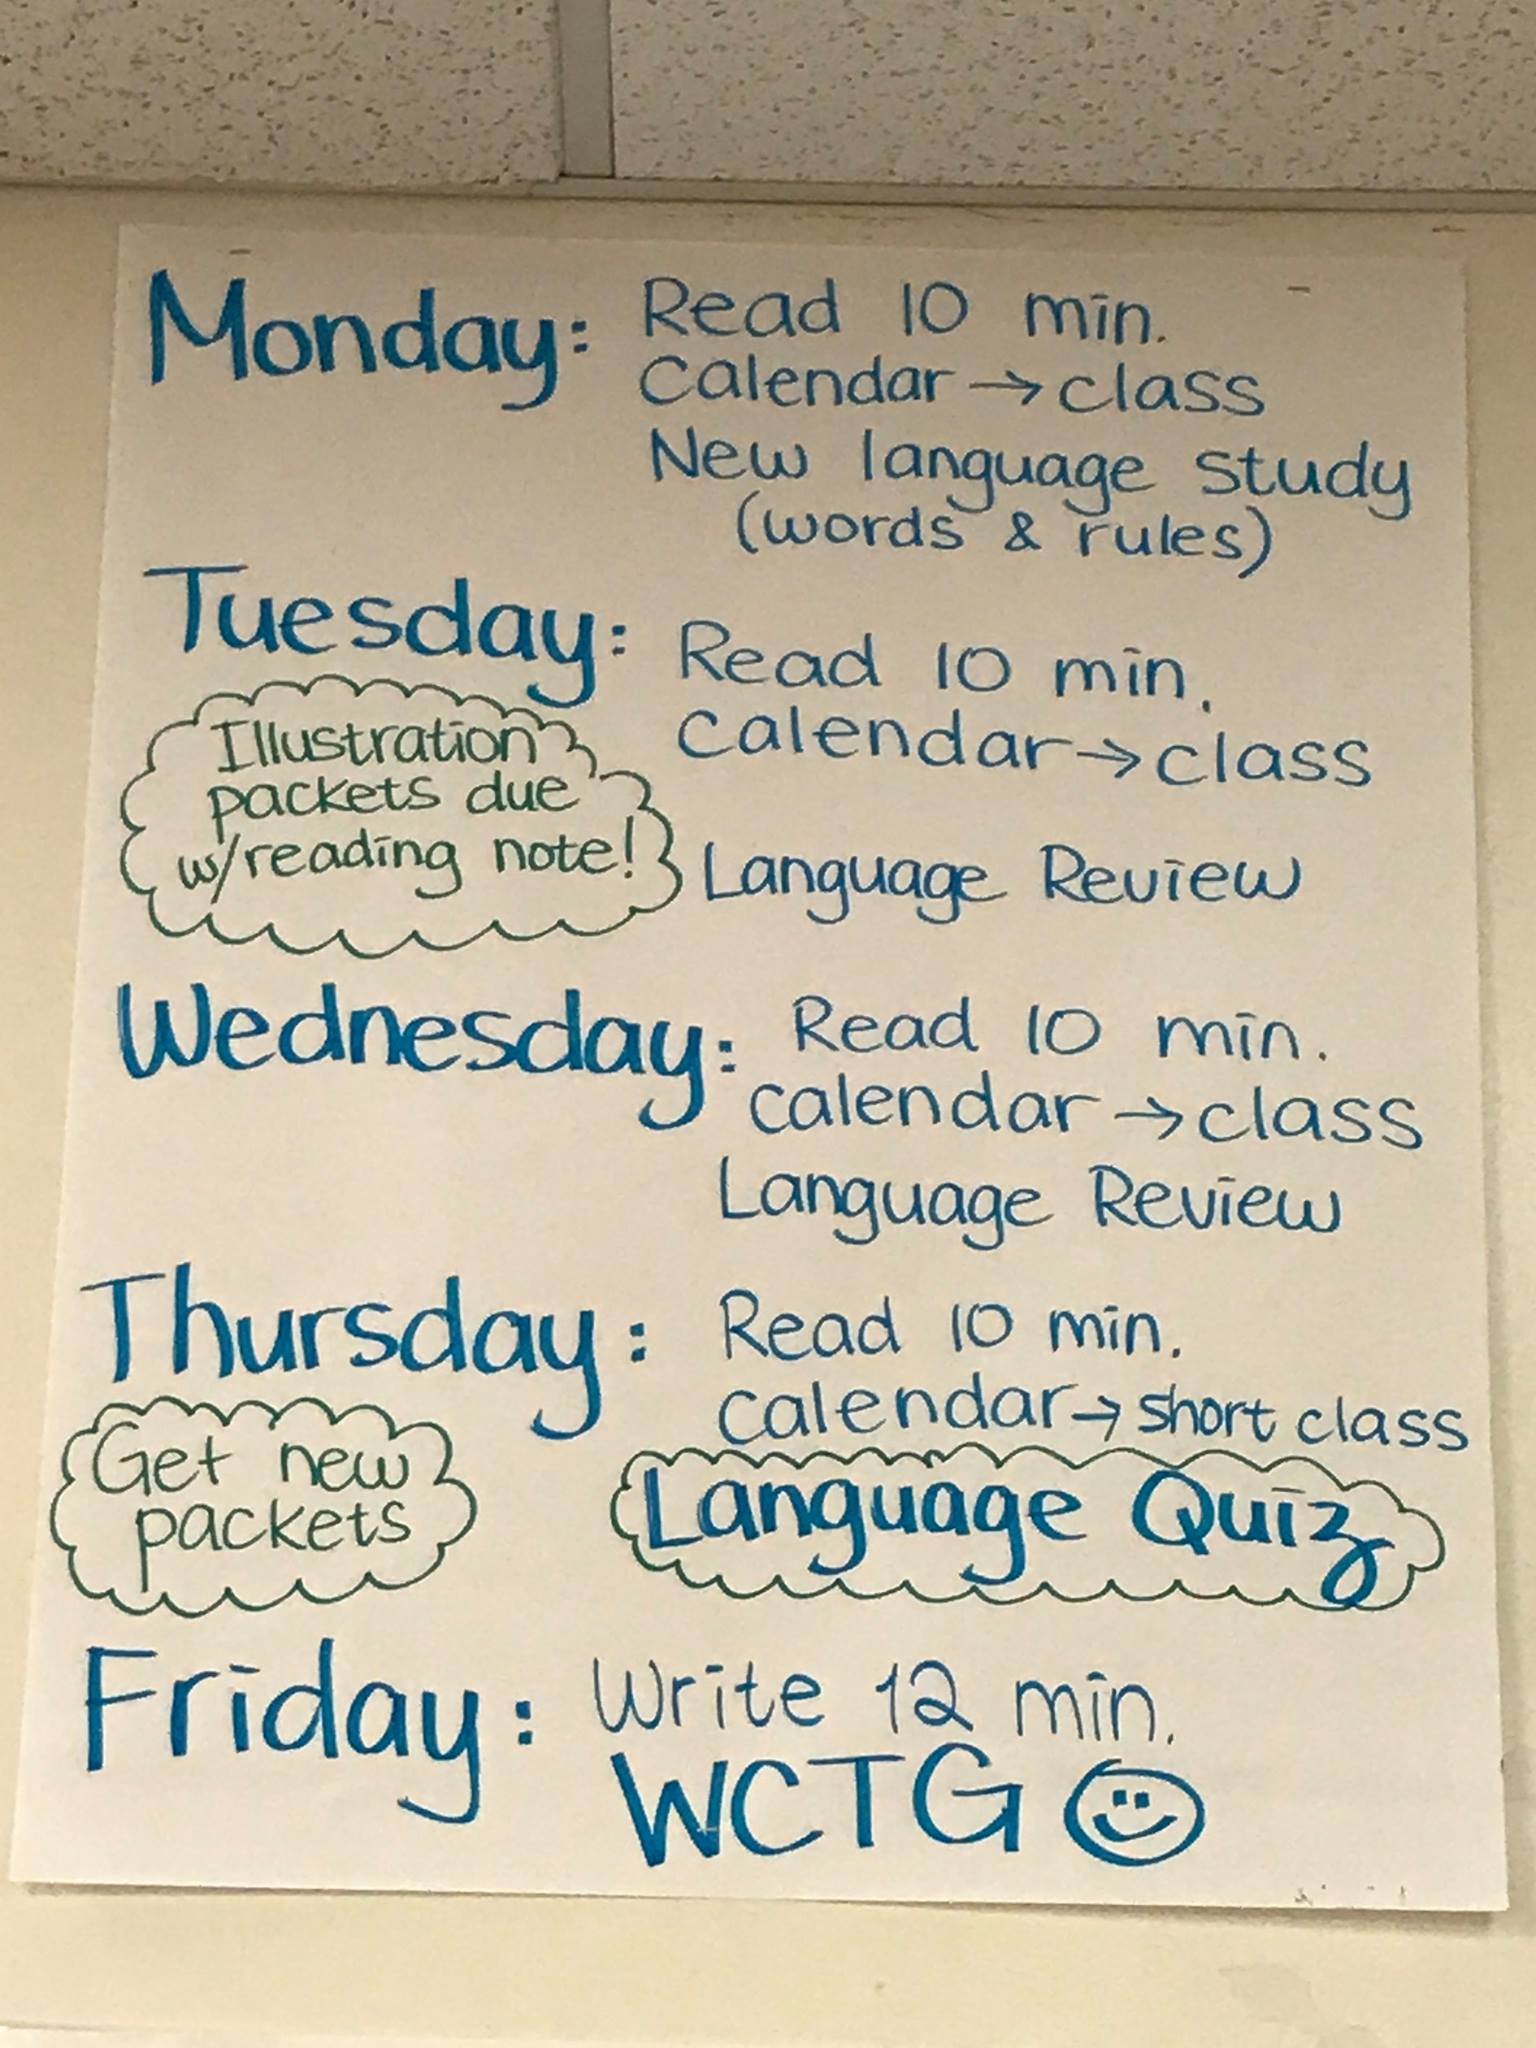 Monday: Read 10 min.
Calendar → class
New language study
(words & rules)
Tuesday: Read 10 min.
Calendar → class
Illustration
packets due
w/reading note!
Language Review
Wednesday: Read 10 min.
calendar → class
Language Review
Thursday: Read 10 min.
calendar → short class
Get new
packets
Language Quiz
Friday: Write 12 min.
WCTG